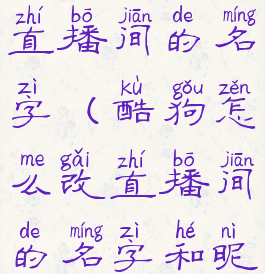 zhí bō jiān de míng
直播间的名
zì ( kù gǒu zěn
字(酷狗怎
me gǎi zhí bō jiān
么改直播间
de míng zì hé nì
的名字和昵